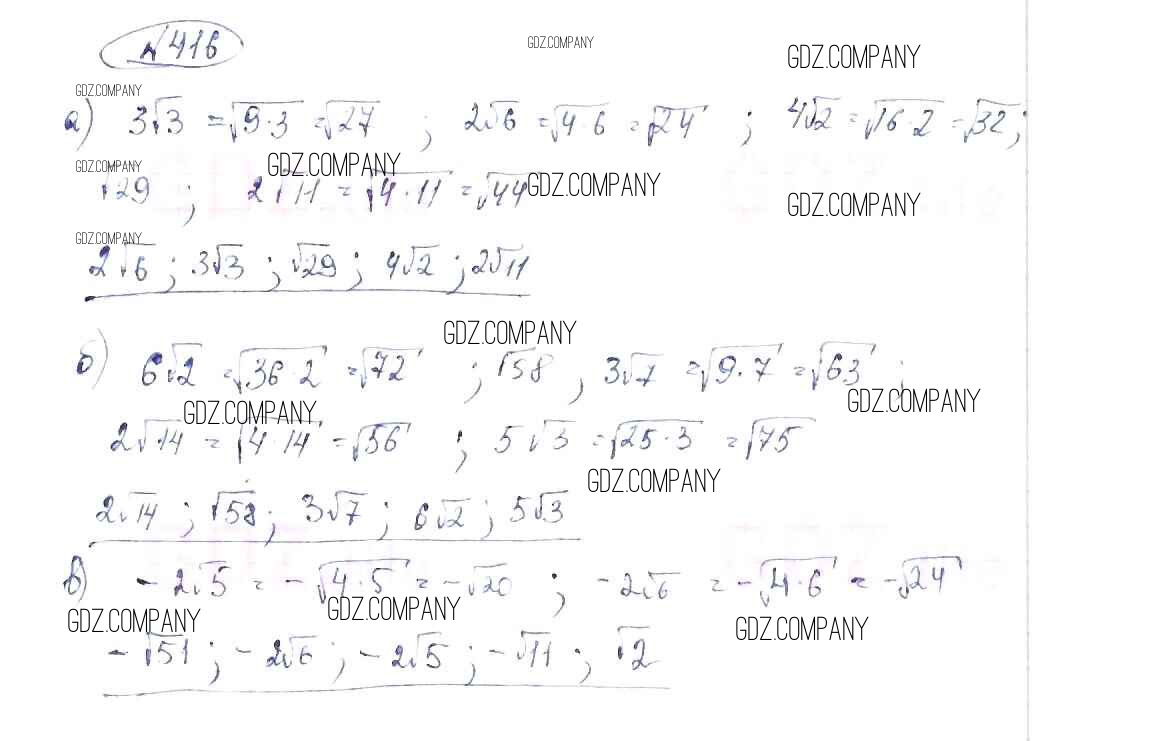 № 416
GDZ.COMPANY
GDZ.COMPANY
GDZ.COMPANY
а) 3√3 = √9·3 = √27 ; 2√6 = √4·6 = √24 ; 4√2 = √16·2 = √32 ;
GDZ.COMPANY
GDZ.COMPANY
√29 ; 2√11 = √4·11 = √44
GDZ.COMPANY
GDZ.COMPANY
GDZ.COMPANY
2√6 ; 3√3 ; √29 ; 4√2 ; 2√11
GDZ.COMPANY
б) 6√2 = √36·2 = √72 ; √58 , 3√7 = √9·7 = √63 ;
GDZ.COMPANY
GDZ.COMPANY
2√14 = √4·14 = √56 ; 5√3 = √25·3 = √75
GDZ.COMPANY
2√14 ; √58 ; 3√7 ; 6√2 ; 5√3
в) -2√5 = -√4·5 = -√20 ; -2√6 = -√4·6 = -√24
GDZ.COMPANY
GDZ.COMPANY
GDZ.COMPANY
-√51 ; -2√6 ; -2√5 ; -√11 ; √2